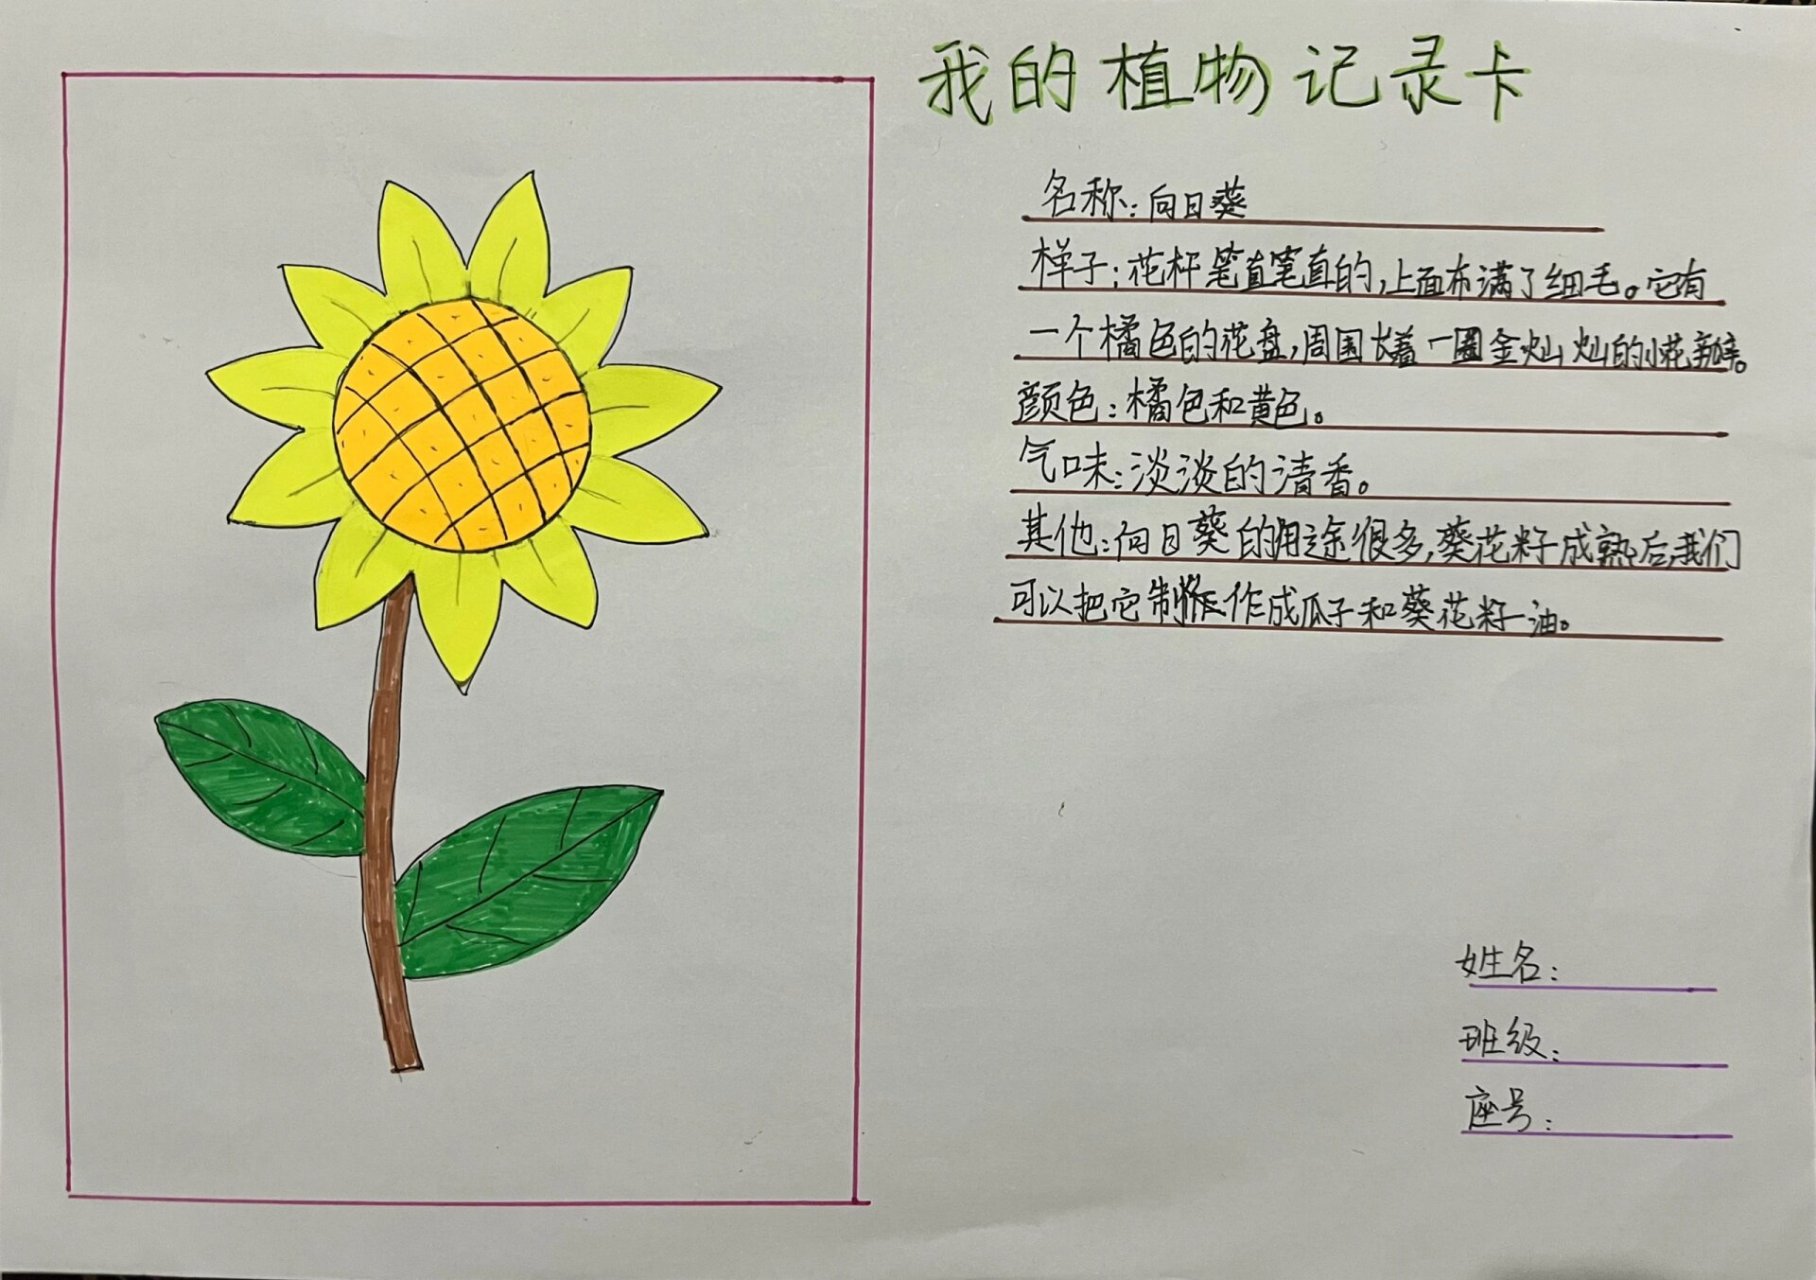 我的植物记录卡
名称：向日葵
样子：花杆笔直笔直的，上面布满了细毛。它有
一个橘色的花盘，周围长着一圈金灿灿的小花瓣。
颜色：橘色和黄色。
气味：淡淡的清香。
其他：向日葵的用途很多，葵花籽成熟后，我们
可以把它制作成瓜子和葵花籽油。
姓名：
班级：
座号：